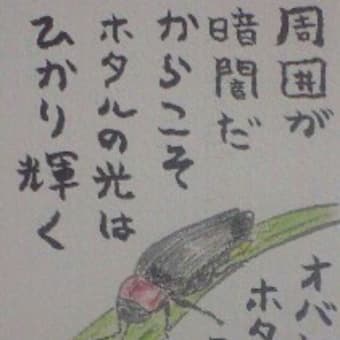 周囲が
暗闇だ
からこそ
ホタルの光は
ひかり輝く
オバ
ホタ